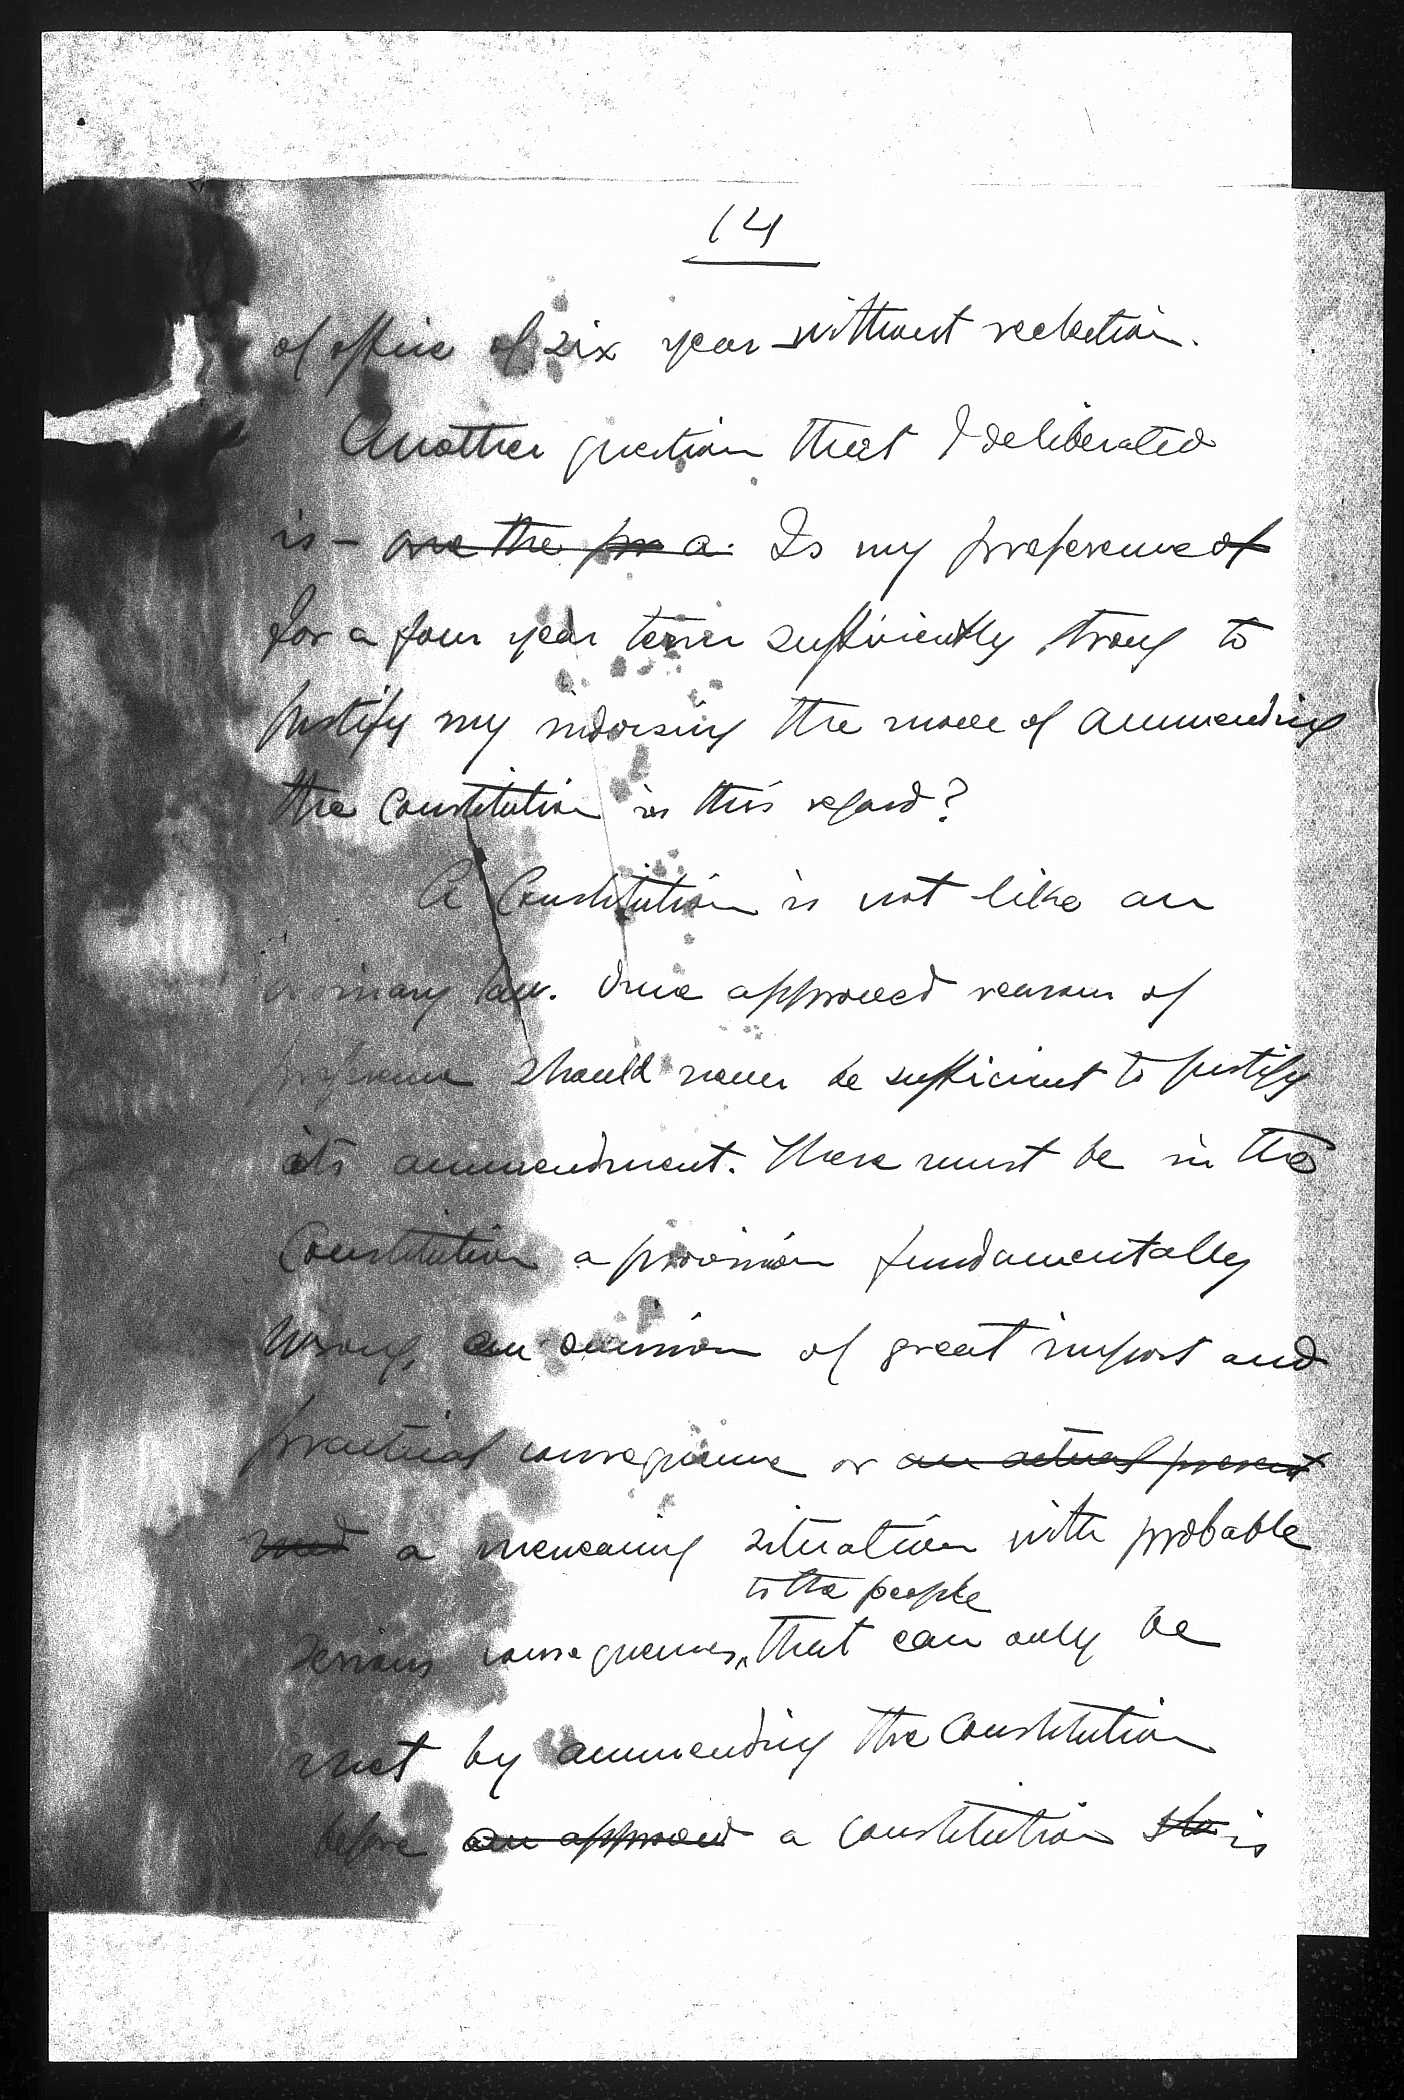 14
of office of six year without reelection.
Another question that I deliberated
is – are the pr a. Is my preference of
for a four year term sufficiently strong to
justify my indorsing the move of ammending
the constitution in this regard?
A Constitution is not like an
ordinary law. Once approved reasons of
preference should never be sufficient to justify
its ammendment. There must be in the
Constitution a provision fundamentally
wrong, an omission of great import and
practical consequence or an actual present
a menacing situation with probable
to the people
serious consequences, that can only be
met by ammending the Constitution
before an approved a constitution sho is